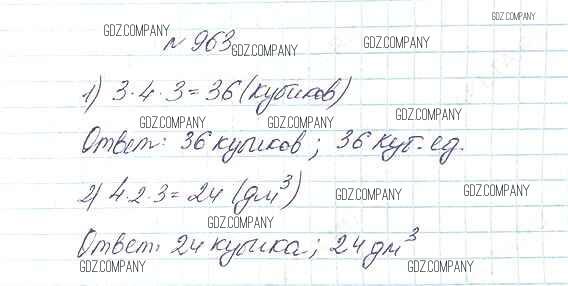 GDZ.COMPANY
№ 963
GDZ.COMPANY GDZ.COMPANY GDZ.COMPANY
1) 3·4·3=36 (кубиков)
GDZ.COMPANY GDZ.COMPANY GDZ.COMPANY
Ответ: 36 кубиков; 36 куб. ед.
2) 4·2·3=24 (дм³) GDZ.COMPANY GDZ.COMPANY
GDZ.COMPANY
Ответ: 24 кубика; 24 дм³
GDZ.COMPANY GDZ.COMPANY